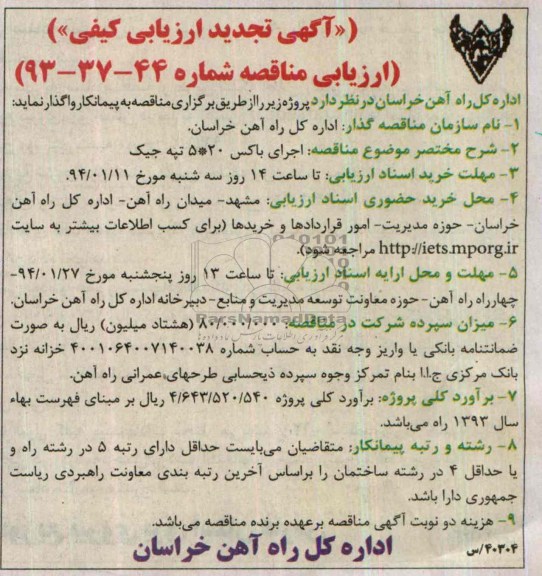 («آگهی تجدید ارزیابی کیفی»)
(ارزیابی مناقصه شماره ۴۴-۳۷-۹۳)
اداره کل راه آهن خراسان در نظر دارد پروژه زیر را از طریق برگزاری مناقصه به پیمانکار واگذار نماید:
۱- نام سازمان مناقصه گذار: اداره کل راه آهن خراسان.
۲- شرح مختصر موضوع مناقصه: اجرای باکس ۲۰*۵ تپه جیک
۳- مهلت خرید اسناد ارزیابی: تا ساعت ۱۴ روز سه شنبه مورخ ۹۴/۰۱/۱۱.
۴- محل خرید حضوری اسناد ارزیابی: مشهد- میدان راه آهن- اداره کل راه آهن
خراسان- حوزه مدیریت- امور قراردادها و خریدها (برای کسب اطلاعات بیشتر به سایت
http://iets.mporg.ir مراجعه شود).
۵- مهلت و محل ارایه اسناد ارزیابی: تا ساعت ۱۳ روز پنجشنبه مورخ ۹۴/۰۱/۲۷-
چهارراه راه آهن- حوزه معاونت توسعه مدیریت و منابع- دبیرخانه اداره کل راه آهن خراسان.
۶- میزان سپرده شرکت در مناقصه: ۸۰/۰۰۰/۰۰۰ (هشتاد میلیون) ریال به صورت
ParsNamadData
ضمانتنامه بانکی یا واریز وجه نقد به حساب شماره ۴۰۰۱۰۶۴۰۰۷۱۴۰۰۳۸ خزانه نزد
بانک مرکزی ج.ا.ا بنام تمرکز وجوه سپرده ذیحسابی طرحهای عمرانی راه آهن.
۷- برآورد کلی پروژه: برآورد کلی پروژه ۴/۶۴۳/۵۲۰/۵۴۰ ریال بر مبنای فهرست بهاء
سال ۱۳۹۳ راه می‌باشد.
۸- رشته و رتبه پیمانکار: متقاضیان می‌بایست حداقل دارای رتبه ۵ در رشته راه و
یا حداقل ۴ در رشته ساختمان را براساس آخرین رتبه بندی معاونت راهبردی ریاست
جمهوری دارا باشد.
۹- هزینه دو نوبت آگهی مناقصه برعهده برنده مناقصه می‌باشد.
اداره کل راه آهن خراسان
۴۰۳۰۴/س